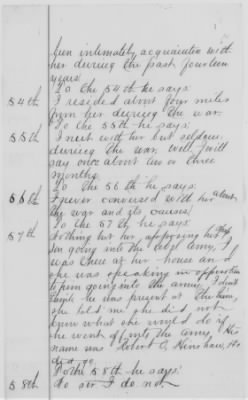 been intimately acquainted with
her during the past fourteen
years
To the 54th he says:
54th I resided about four miles
from her during the war.
To the 55th he says:
55th I met with her but seldom
during the war, well, I will
say once about two or three
months.
To the 56th he says:
56th I never conversed with her about
the war and its causes.
To the 57th he says:
57th Nothing but her opposing her
son going into the rebel army. I
was there at her house and
she was speaking in opposition
to him going into the army. I don't
think he was present at the time,
she told me she did not
know what she would do if
he went into the army. His
name was Robert C. Henshaw. He
did go.
To the 58th he says:
58th No sir I do not